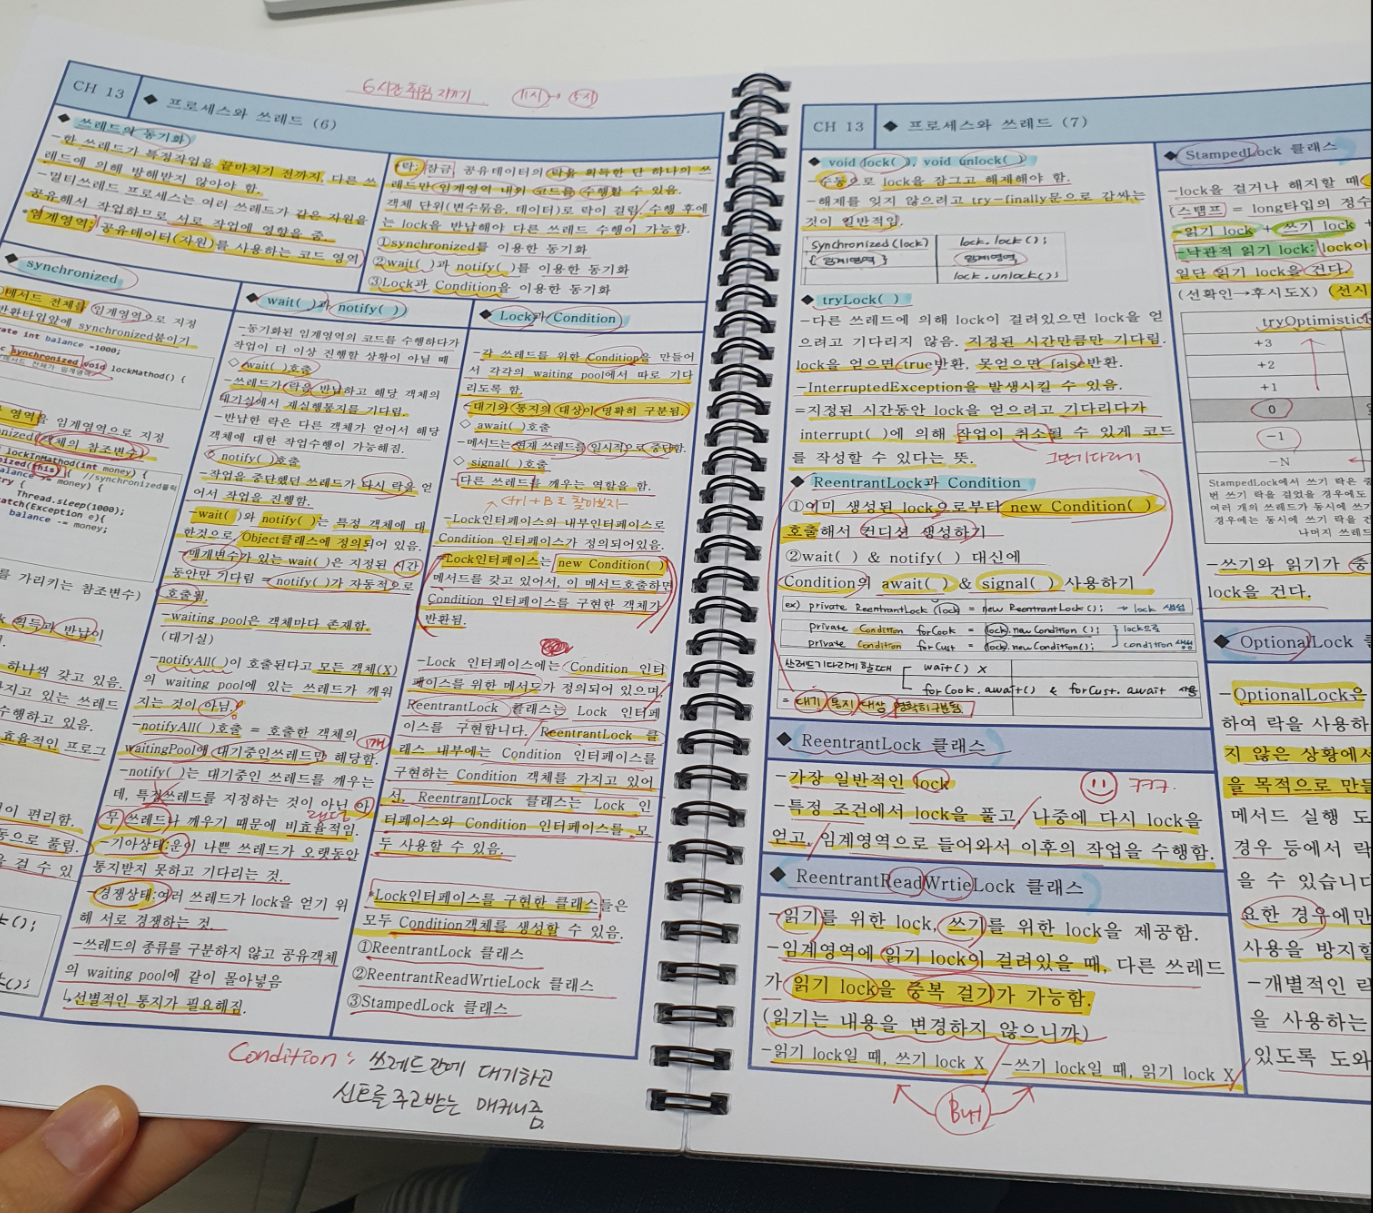 6시간 취침 지키기 11시 → 5시
CH 13 ◆ 프로세스와 쓰레드 (6)
◆ 쓰레드의 동기화
-한 쓰레드가 특정작업을 끝마치기 전까지, 다른 쓰
레드에 의해 방해받지 않아야 함.
-멀티쓰레드 프로세스는 여러 쓰레드가 같은 자원을
공유해서 작업하므로 서로 작업에 영향을 줌.
*임계영역: 공유데이터(자원)를 사용하는 코드 영역
*락: 잠금, 공유데이터의 락을 획득한 단 하나의 쓰
레드만 임계영역 내의 코드를 수행할 수 있음.
객체 단위(변수묶음, 데이터)로 락이 걸림, 수행 후에
는 lock을 반납해야 다른 쓰레드 수행이 가능함.
①synchronized를 이용한 동기화
②wait( )과 notify( )를 이용한 동기화
③Lock과 Condition을 이용한 동기화
◆ synchronized
메서드 전체를 임계영역으로 지정
반환타입앞에 synchronized붙이기
int balance =1000;
synchronized void lockMathod() {
영역을 임계영역으로 지정
객체의 참조변수)
lockInMathod(int money) {
(this){ //synchronized블럭
money) {
Thread.sleep(1000);
catch(Exception e){
balance -= money;
를 가리키는 참조변수)
획득과 반납이
하나씩 갖고 있음.
가지고 있는 쓰레드
수행하고 있음.
효율적인 프로그
이 편리함.
동으로 풀림.
을 걸 수 있
◆ wait( )과 notify( )
-동기화된 임계영역의 코드를 수행하다가
작업이 더 이상 진행할 상황이 아닐 때
◇ wait( )호출
-쓰레드가 락을 반납하고 해당 객체의
대기실에서 재실행통지를 기다림.
-반납한 락은 다른 객체가 얻어서 해당
객체에 대한 작업수행이 가능해짐.
◇ notify( )호출
-작업을 중단했던 쓰레드가 다시 락을 얻
어서 작업을 진행함.
-wait( )와 notify( )는 특정 객체에 대
한것으로, Object클래스에 정의되어 있음.
-매개변수가 있는 wait( )은 지정된 시간
동안만 기다림 = notify( )가 자동적으로
호출됨.
-waiting pool은 객체마다 존재함.
(대기실)
-notifyAll( )이 호출된다고 모든 객체(X)
의 waiting pool에 있는 쓰레드가 깨워
지는 것이 아님!
-notifyAll( )호출 = 호출한 객체의
waitingPool에 대기중인쓰레드만 해당함.
-notify( )는 대기중인 쓰레드를 깨우는
데, 특정쓰레드를 지정하는 것이 아닌 아
랜덤
무 쓰레드나 깨우기 때문에 비효율적임.
-기아상태:운이 나쁜 쓰레드가 오랫동안
통지받지 못하고 기다리는 것.
-경쟁상태:여러 쓰레드가 lock을 얻기 위
해 서로 경쟁하는 것.
-쓰레드의 종류를 구분하지 않고 공유객체
의 waiting pool에 같이 몰아넣음
↳선별적인 통지가 필요해짐.
◆ Lock과 Condition
-각 쓰레드를 위한 Condition을 만들어
서 각각의 waiting pool에서 따로 기다
리도록 함.
-대기와 통지의 대상이 명확히 구분됨.
◇ await( )호출
-메서드는 현재 쓰레드를 일시적으로 중단함.
◇ signal( )호출
-다른 쓰레드를 깨우는 역할을 함.
-Lock인터페이스의 내부인터페이스로
Condition 인터페이스가 정의되어있음.
*Lock인터페이스는 new Condition()
메서드를 갖고 있어서, 이 메서드호출하면
Condition 인터페이스를 구현한 객체가
반환됨.
-Lock 인터페이스에는 Condition 인터
페이스를 위한 메서드가 정의되어 있으며,
ReentrantLock 클래스는 Lock 인터페
이스를 구현합니다. ReentrantLock 클
래스 내부에는 Condition 인터페이스를
구현하는 Condition 객체를 가지고 있어
서, ReentrantLock 클래스는 Lock 인
터페이스와 Condition 인터페이스를 모
두 사용할 수 있음.
*Lock인터페이스를 구현한 클래스들은
모두 Condition객체를 생성할 수 있음.
①ReentrantLock 클래스
②ReentrantReadWrtieLock 클래스
③StampedLock 클래스
Condition : 쓰레드간에 대기하고
신호를 주고받는 매커니즘.
CH 13 ◆ 프로세스와 쓰레드 (7)
◆ void lock( ), void unlock( )
-수동으로 lock을 잠그고 해제해야 함.
-해제를 잊지 않으려고 try-finally문으로 감싸는
것이 일반적임.
synchronized(lock) lock.lock();
{ 임계영역 } 임계영역
lock.unlock();
◆ tryLock( )
-다른 쓰레드에 의해 lock이 걸려있으면 lock을 얻
으려고 기다리지 않음. 지정된 시간만큼만 기다림.
lock을 얻으면 true반환, 못얻으면 false반환.
-InterruptedException을 발생시킬 수 있음.
=지정된 시간동안 lock을 얻으려고 기다리다가
interrupt( )에 의해 작업이 취소될 수 있게 코드
를 작성할 수 있다는 뜻.
◆ ReentrantLock과 Condition
①이미 생성된 lock으로부터 new Condition( )
호출해서 컨디션 생성하기
②wait( ) & notify( ) 대신에
Condition의 await( ) & signal( ) 사용하기
ex) private ReentrantLock lock = new ReentrantLock(); → lock 생성
private Condition forCook = lock.newCondition(); } lock으로
private Condition forCust = lock.newCondition(); condition 생성
쓰레드기다리게 할때 wait() X
forCook.await() & forCust.await 사용
= 대기 통지 대상 명확히구분됨
◆ ReentrantLock 클래스
-가장 일반적인 lock
-특정 조건에서 lock을 풀고, 나중에 다시 lock을
얻고, 임계영역으로 들어와서 이후의 작업을 수행함.
◆ ReentrantReadWrtieLock 클래스
-읽기를 위한 lock, 쓰기를 위한 lock을 제공함.
-임계영역에 읽기 lock이 걸려있을 때, 다른 쓰레드
가 읽기 lock을 중복 걸기가 가능함.
(읽기는 내용을 변경하지 않으니까)
-읽기 lock일 때, 쓰기 lock X -쓰기 lock일 때, 읽기 lock X
But
◆ StampedLock 클래스
-lock을 걸거나 해지할 때
(스탬프 = long타입의 정수
-읽기 lock + 쓰기 lock +
-낙관적 읽기 lock: lock이
일단 읽기 lock을 건다.
(선확인→후시도X) (선시
tryOptimistic
+3
+2
+1
0
-1
-N
StampedLock에서 쓰기 락은
번 쓰기 락을 걸었을 경우에도
여러 개의 쓰레드가 동시에 쓰기
경우에는 동시에 쓰기 락을 건
나머지 쓰레드
-쓰기와 읽기가 충
lock을 건다.
◆ OptionalLock 클
-OptionalLock은
하여 락을 사용하
지 않은 상황에서
을 목적으로 만들
메서드 실행 도
경우 등에서 락
을 수 있습니다
요한 경우에만
사용을 방지할
-개별적인 락
을 사용하는
있도록 도와